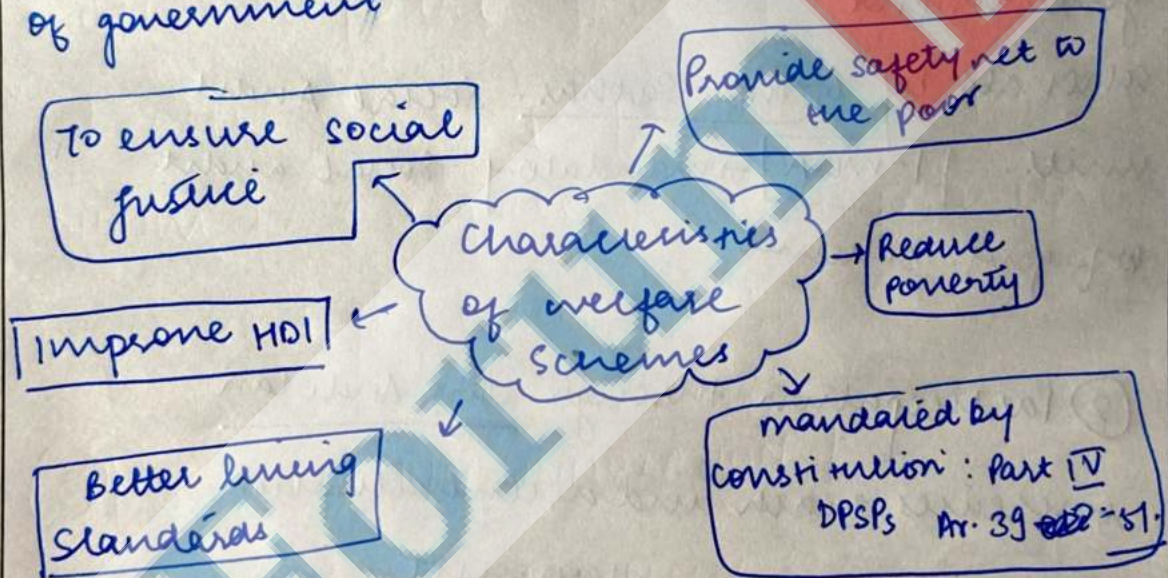 of government
To ensure social
justice
Provide safety net to
the poor
Characteristics
of welfare
Schemes
Reduce
poverty
Improve HDI
Better living
Standards
mandated by
Constitution : Part IV
DPSPs Ar. 39 - 51.
FORUM